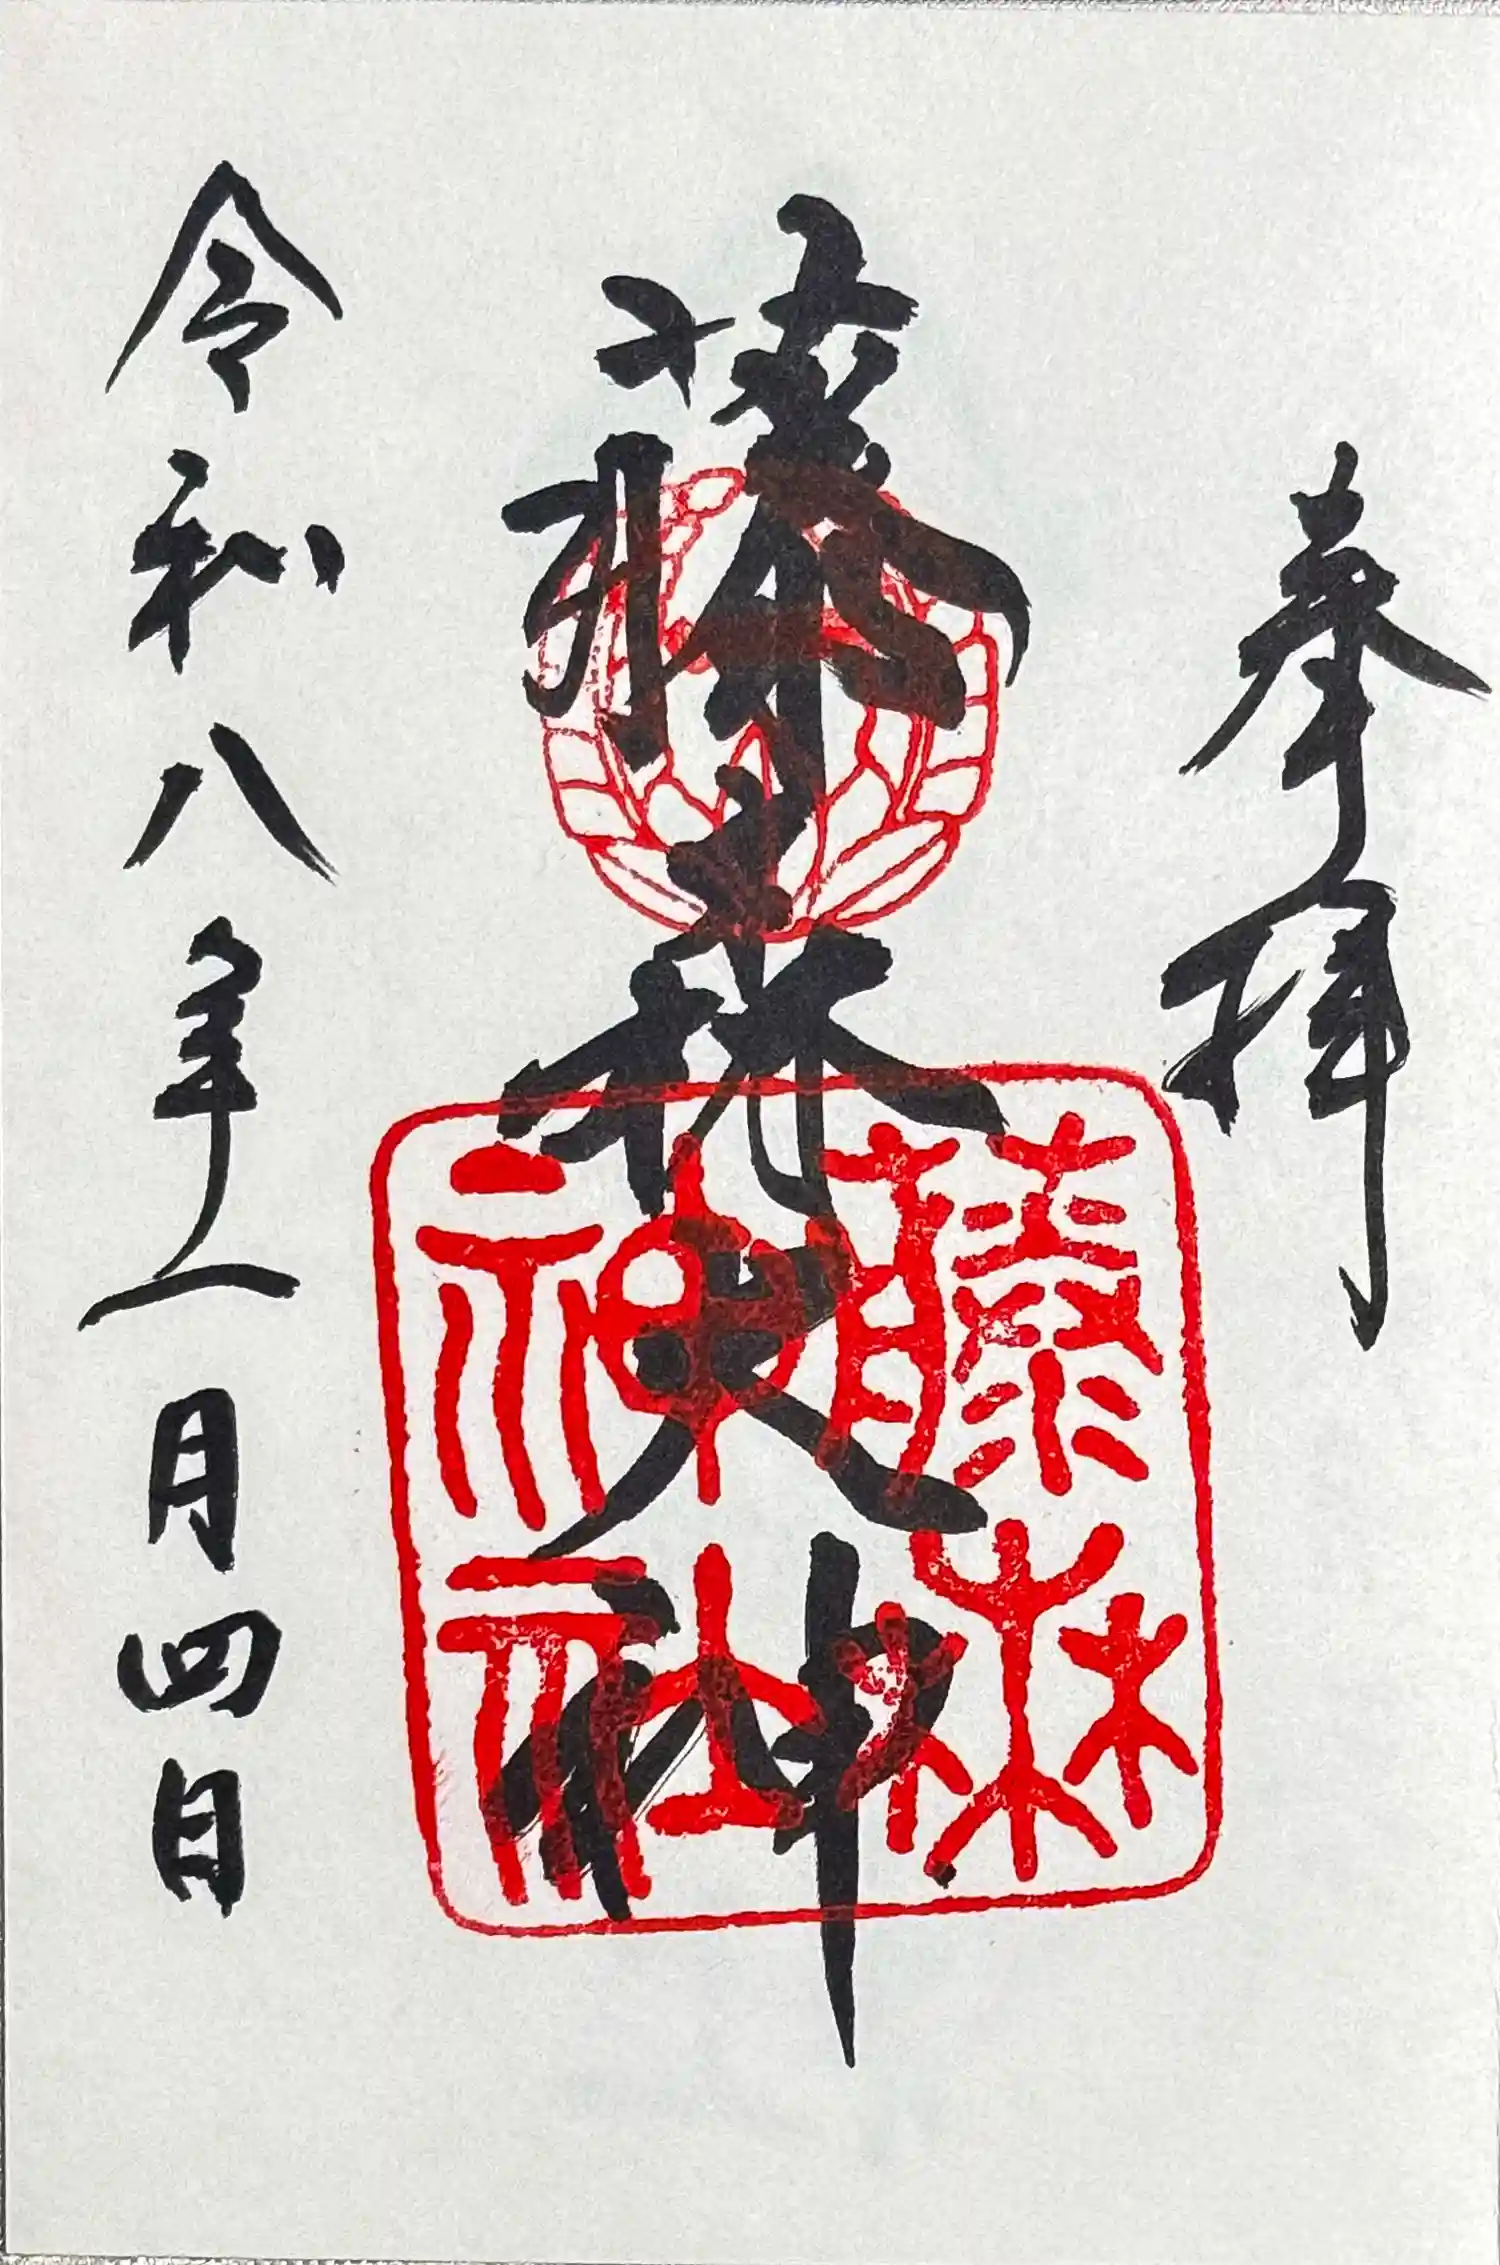 奉拝
藤森大神
藤森神社
令和八年一月四日